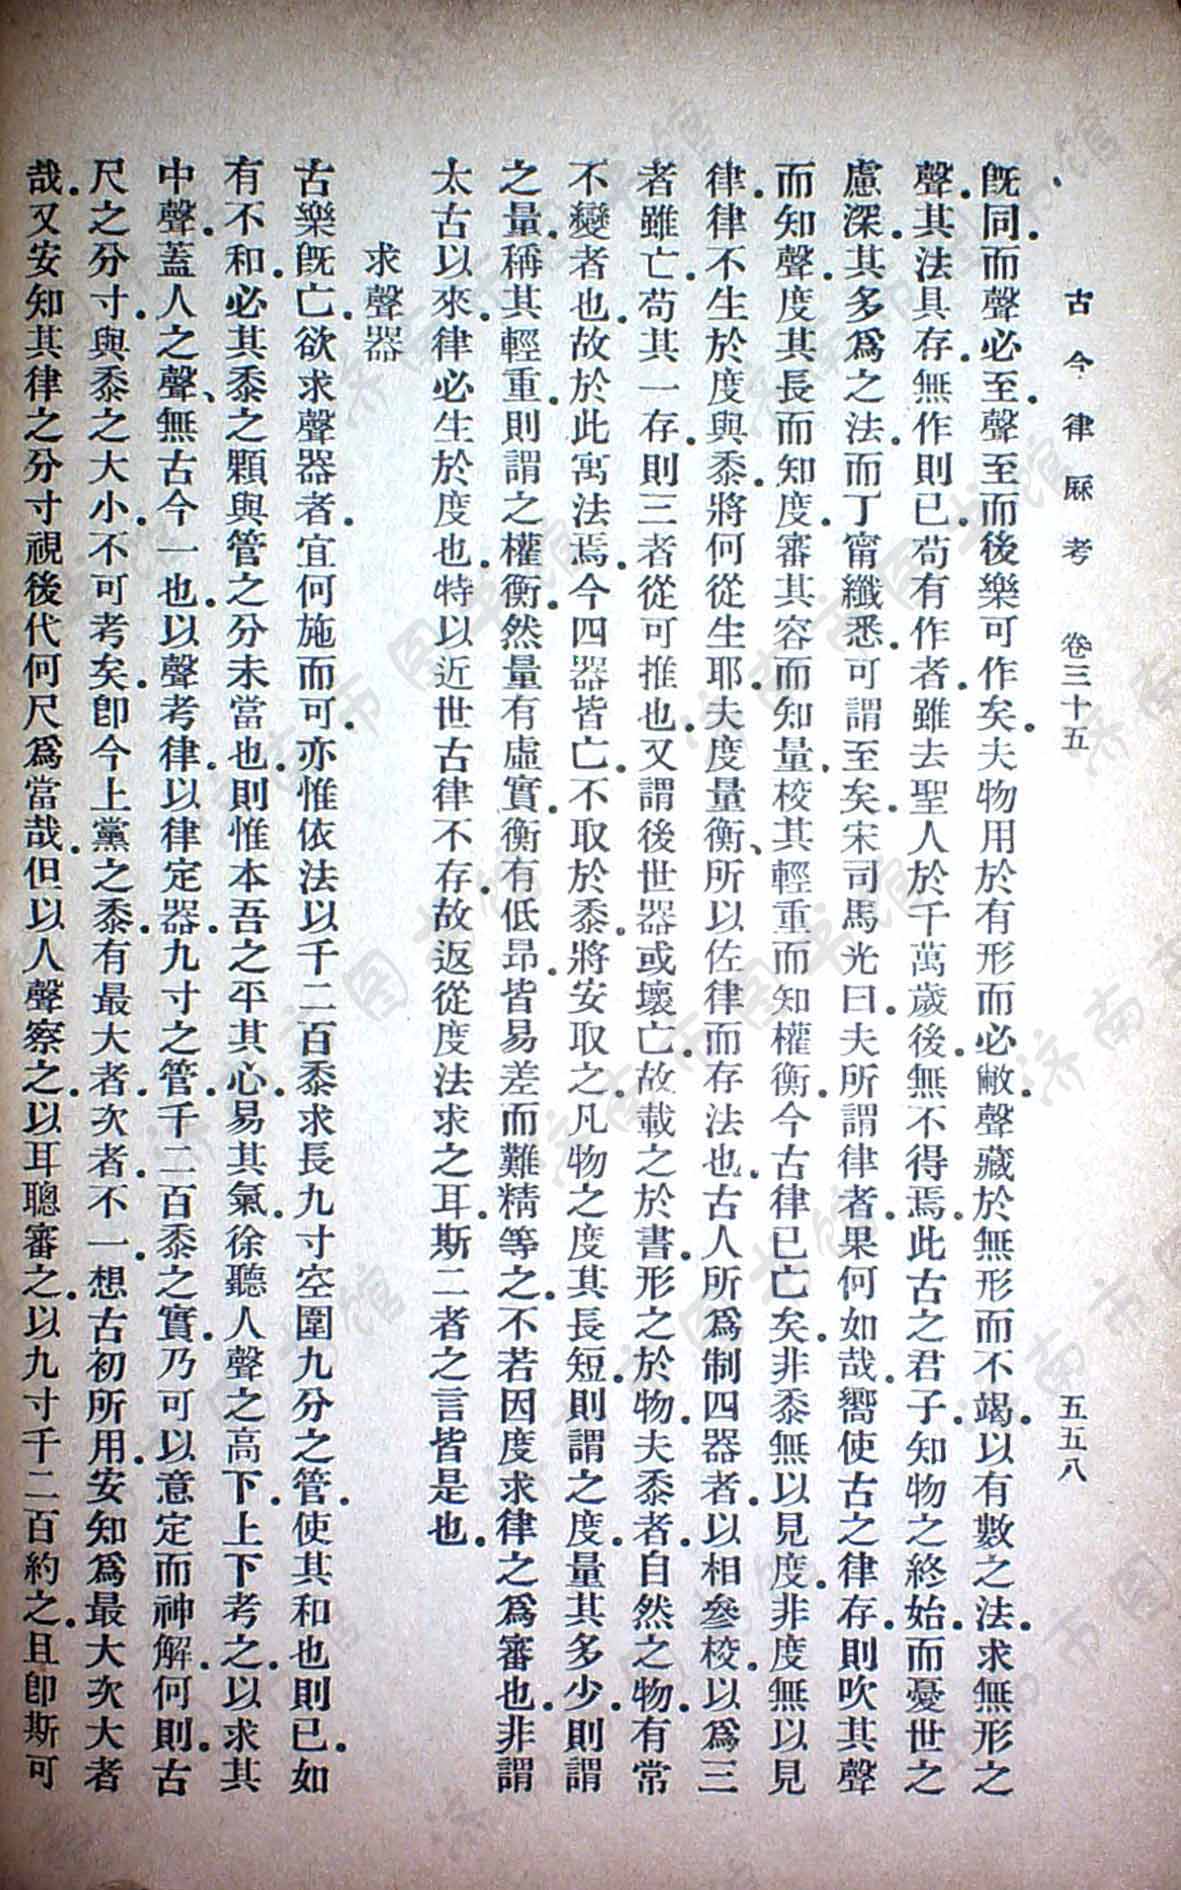 古今律厤考 卷三十五 五五八
旣同而聲必至聲至而後樂可作矣夫物用於有形而必敝聲藏於無形而不竭以有數之法求無形之
聲其法具存無作則已苟有作者雖去聖人於千萬歲後無不得焉此古之君子知物之終始而憂世之
慮深其多爲之法而丁甯纖悉可謂至矣宋司馬光曰夫所謂律者果何如哉嚮使古之律存則吹其聲
而知聲度其長而知度審其容而知量校其輕重而知權衡今古律已亡矣非黍無以見度非度無以見
律律不生於度與黍將何從生耶夫度量衡所以佐律而存法也古人所爲制四器者以相參校以爲三
者雖亡苟其一存則三者從可推也又謂後世器或壞亡故載之於書形之於物夫黍者自然之物有常
不變者也故於此寓法焉今四器皆亡不取於黍將安取之凡物之度其長短則謂之度量其多少則謂
之量稱其輕重則謂之權衡然量有虛實衡有低昂皆易差而難精等之不若因度求律之爲審也非謂
太古以來律必生於度也特以近世古律不存故返從度法求之耳斯二者之言皆是也
求聲器
古樂旣亡欲求聲器者宜何施而可亦惟依法以千二百黍求長九寸空圍九分之管使其和也則已如
有不和必其黍之顆與管之分未當也則惟本吾之平其心易其氣徐聽人聲之高下上下考之以求其
中聲蓋人之聲無古今一也以聲考律以律定器九寸之管千二百黍之實乃可以意定而神解何則古
尺之分寸與黍之大小不可考矣卽今上黨之黍有最大者次者不一想古初所用安知爲最大次大者
哉又安知其律之分寸視後代何尺爲當哉但以人聲察之以耳聰審之以九寸千二百約之且卽斯可